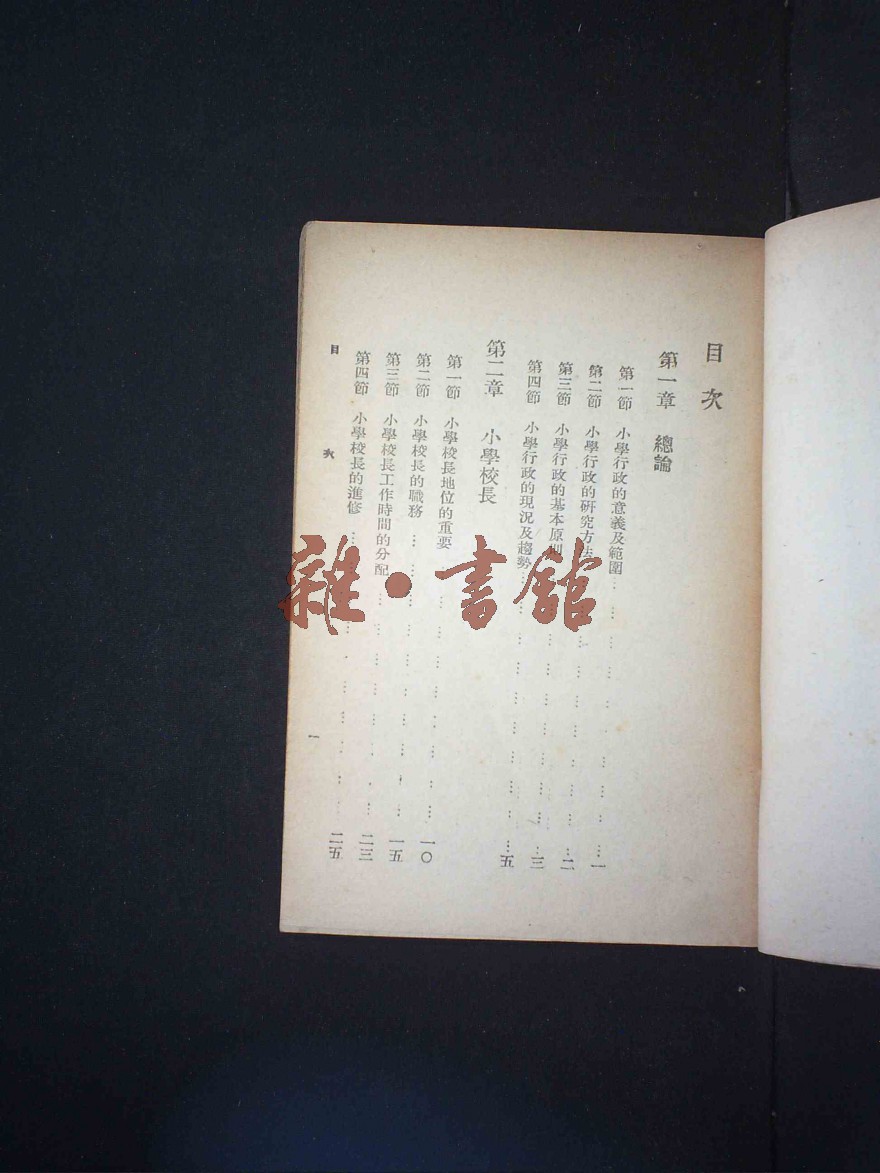 目次
第一章　總論
第一節　小學行政的意義及範圍……一
第二節　小學行政的研究方法……二
第三節　小學行政的基本原則……三
第四節　小學行政的現況及趨勢……五
第二章　小學校長
第一節　小學校長地位的重要……一〇
第二節　小學校長的職務……一五
第三節　小學校長工作時間的分配……二三
第四節　小學校長的進修……二五
目次
一
雜·書館